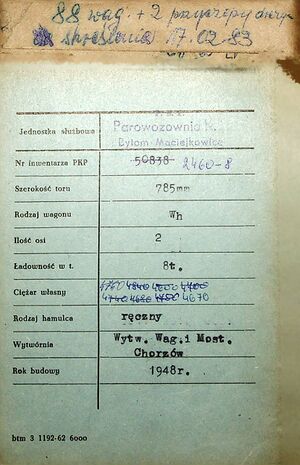 88 wag. + 2 przyczepy
skreślenia 17.02.83
Jednostka służbowa
Parowozownia K.
Bytom-Maciejkowice
Nr inwentarza PKP 50838 2460-8
Szerokość toru 785mm
Rodzaj wagonu Wh
Ilość osi 2
Ładowność w t. 8t.
Ciężar własny 4760 4840
4670
Rodzaj hamulca ręczny
Wytwórnia Wytw. Wag.i Most.
Chorzów
Rok budowy 1948r.
btm 3 1192-62 6000